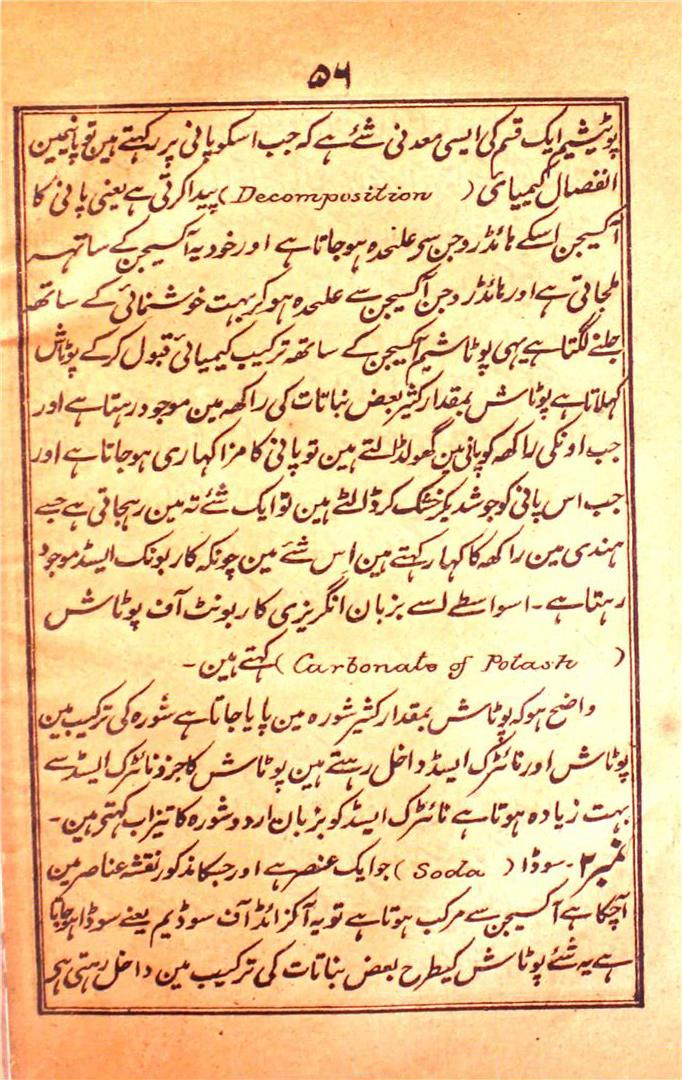 ۵۶
پوٹیشیم ایک قسم کی ایسی معدنی شئے ہے کہ جب اسکو پانی پر رکہتے ہین تو پانیمین
انفصال کیمیای (Decomposition) پیدا کرتی ہے یعنی پانی کا
آکسیجن اسکے ہائڈروجن سی علنحدہ ہوجاتا ہے اور خود یہ آکسیجن کے ساتہہ
ملجاتی ہے اور ہائڈروجن آکسیجن سے علنحدہ ہوکر بہت خوشنمائی کے ساتھہ
جلنے لگتا ہے یہی پوٹاشیم آکسیجن کے ساتھہ ترکیب کیمیائی قبول کرکے پوٹاش
کہلاتا ہے پوٹاش بمقدار کثیر بعض نباتات کی راکھہ مین موجود رہتا ہے اور
جب اونکی راکھہ کو پانی مین گھولڈالتے ہین تو پانی کا مزا کہاری ہوجاتا ہے اور
جب اس پانی کو جوشدیکر خشک کرڈالتے ہین تو ایک شئے تہ مین رہجاتی ہے جسے
ہندی مین راکھہ کا کہار کہتے ہین اس شئے مین چونکہ کاربونک ایسڈ موجود
رہتا ہے۔ اسواسطے اسے بزبان انگریزی کاربونٹ آف پوٹاش
(Carbonate of Potash) کہتے ہین۔
واضح ہو کہ پوٹاش بمقدار کثیر شورہ مین پایا جاتا ہے شورہ کی ترکیب مین
پوٹاش اور نائٹرک ایسڈ داخل رہتے ہین پوٹاش کا جزو نائٹرک ایسڈ سے
بہت زیادہ ہوتا ہے نائٹرک ایسڈ کو بزبان اردو شورہ کا تیزاب کہتی ہین۔
نمبر ۲۔ سوڈا (Soda) جو ایک عنصر ہے اور جسکا مذکور نقشہ عناصر مین
آچکا ہے آکسیجن سے مرکب ہوتا ہے تو یہ آکزائڈ آف سوڈیم یعنے سوڈا ہوجاتا
ہے یہ شئے پوٹاش کیطرح بعض نباتات کی ترکیب مین داخل رہتی ہی